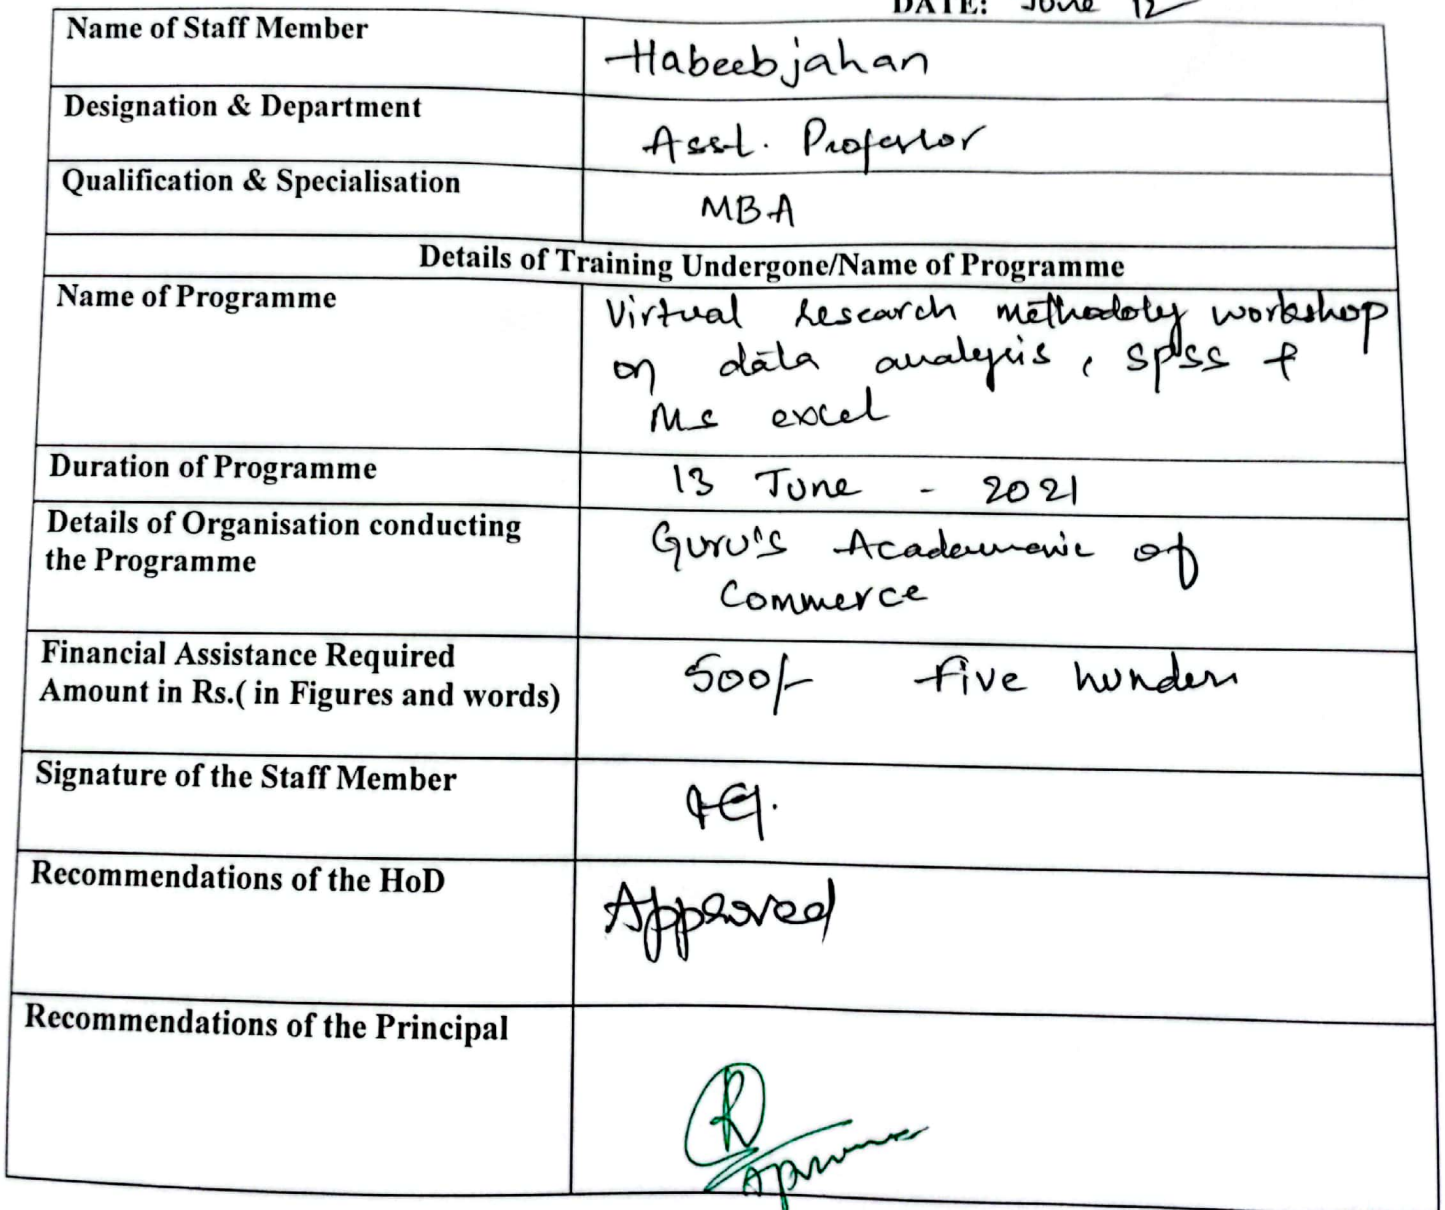 DATE: June 12
Name of Staff Member
Habeebjahan
Designation & Department
Asst. Professor
Qualification & Specialisation
MBA
Details of Training Undergone/Name of Programme
Name of Programme
Virtual research methodoly workshop
on data analysis, SPSS &
Ms excel
Duration of Programme
13 June - 2021
Details of Organisation conducting
the Programme
Guru's of
Commerce
Financial Assistance Required
Amount in Rs.( in Figures and words)
500/- five
Signature of the Staff Member
Recommendations of the HoD
Approved
Recommendations of the Principal